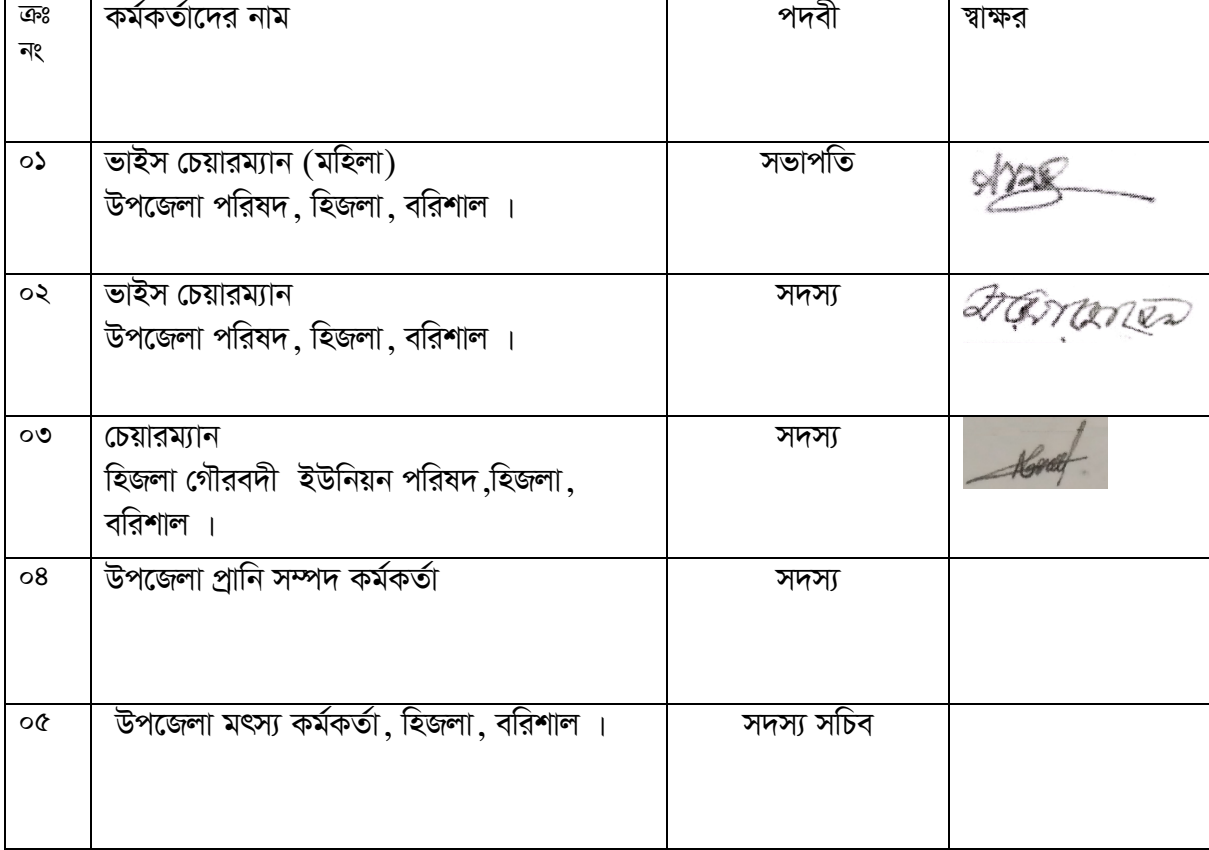 ক্রঃ নং কর্মকর্তাদের নাম পদবী স্বাক্ষর
০১ ভাইস চেয়ারম্যান (মহিলা) সভাপতি
উপজেলা পরিষদ, হিজলা, বরিশাল ।
০২ ভাইস চেয়ারম্যান সদস্য
উপজেলা পরিষদ, হিজলা, বরিশাল ।
০৩ চেয়ারম্যান সদস্য
হিজলা গৌরবদী ইউনিয়ন পরিষদ,হিজলা,
বরিশাল ।
০৪ উপজেলা প্রানি সম্পদ কর্মকর্তা সদস্য
০৫ উপজেলা মৎস্য কর্মকর্তা, হিজলা, বরিশাল । সদস্য সচিব